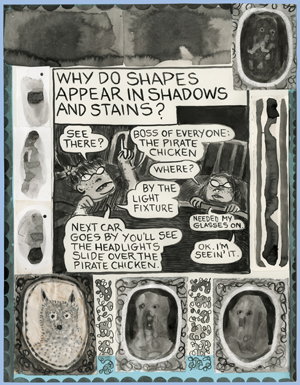 WHY DO SHAPES
APPEAR IN SHADOWS
AND STAINS?
SEE
THERE?
BOSS OF EVERYONE:
THE PIRATE
CHICKEN
WHERE?
BY THE
LIGHT
FIXTURE
NEEDED MY
GLASSES ON
NEXT CAR
GOES BY YOU'LL SEE
THE HEADLIGHTS
SLIDE OVER THE
PIRATE CHICKEN.
OK. I'M
SEEIN' IT.